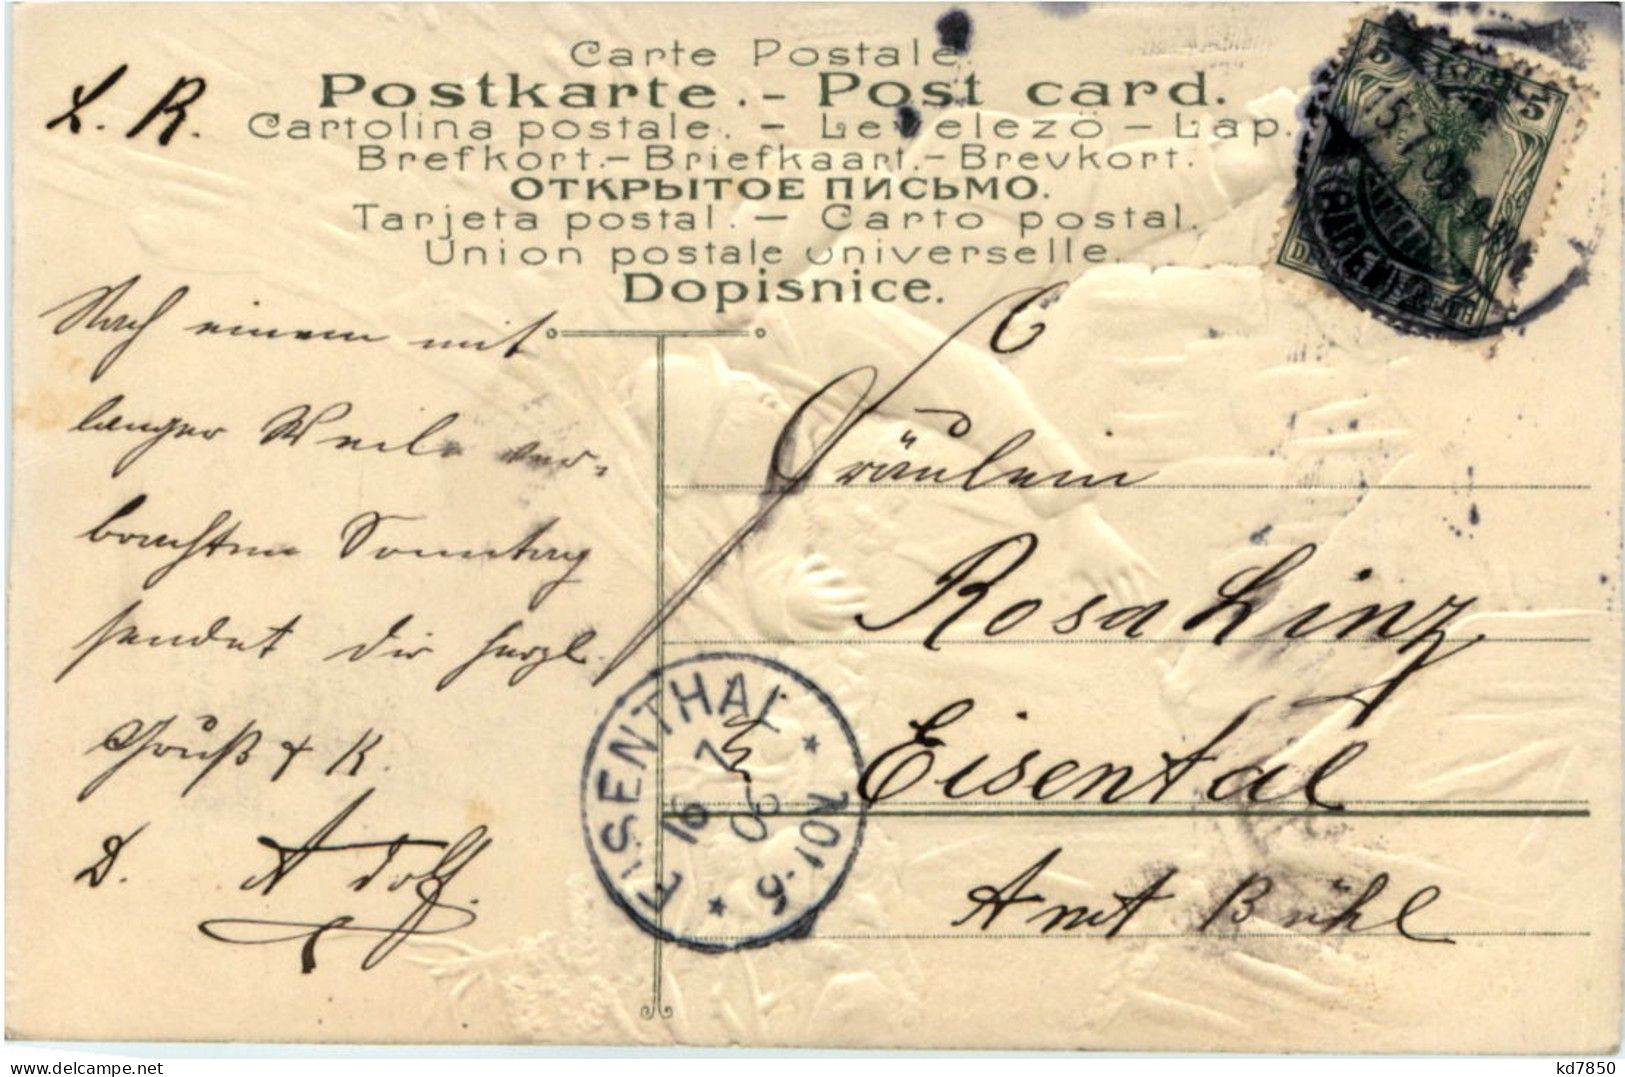 Carte Postale.
Postkarte. - Post card.
Cartolina postale. - Levelezö - Lap.
Brefkort. - Briefkaart. - Brevkort.
ОТКРЫТОЕ ПИСЬМО.
Tarjeta postal. - Carto postal.
Union postale universelle.
Dopisnice.
L. R.
Nach einem mit
langer Weile ver-
brachten Sonntag
sendet dir herzl.
Gruß & K.
D. Adolf.
Fräulein
Rosa Linz
Eisental
Amt Bühl
EISENTHAL
16 7
06
5 5
15.7.06
kd7850